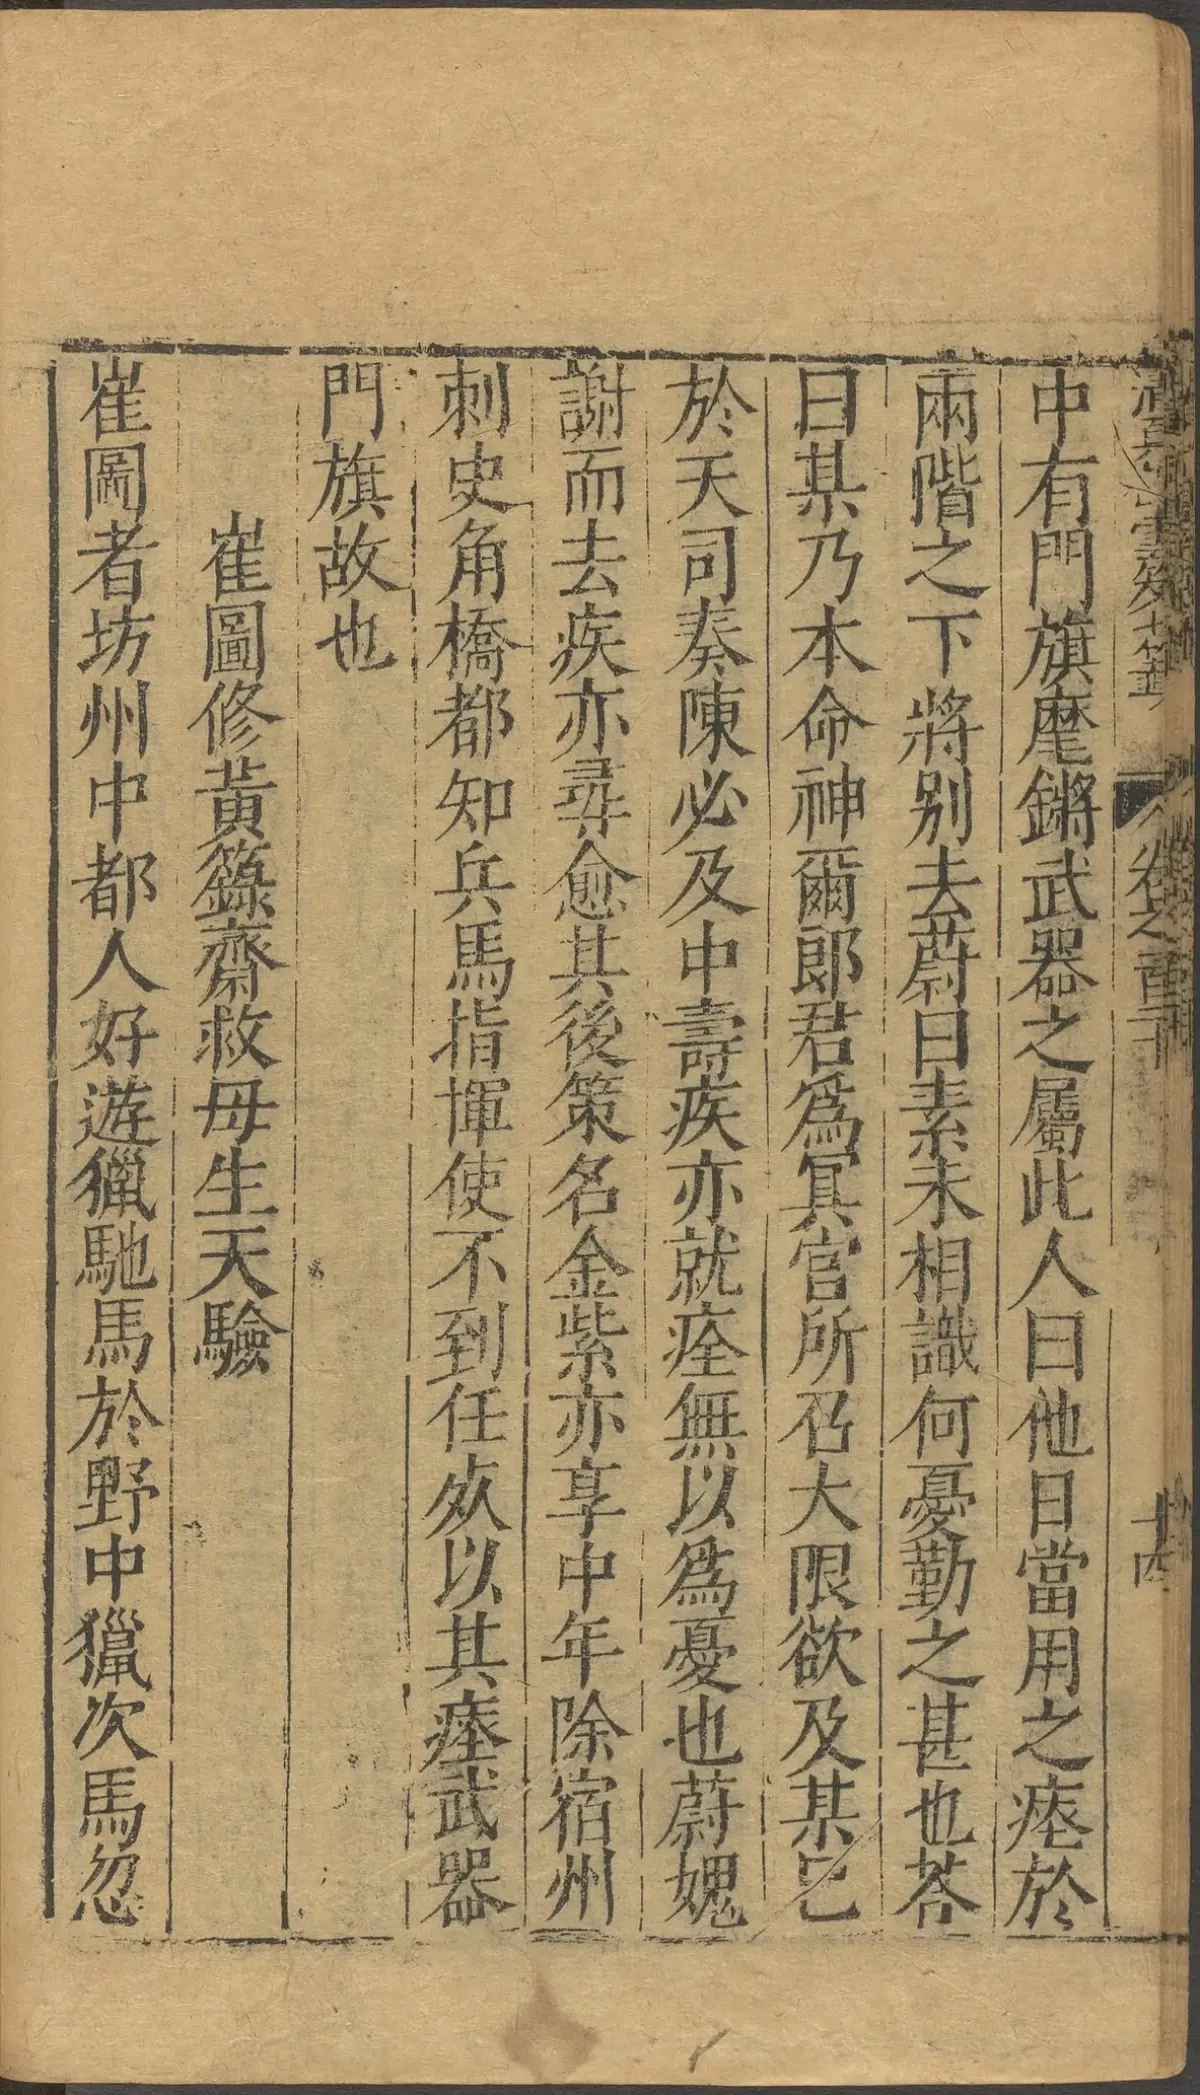 雲笈七籤 卷之一百二十 十四
中有門旗麾鏘武器之屬此人曰他日當用之瘞於
兩階之下將別去蔚曰素未相識何憂勤之甚也荅
曰某乃本命神爾郎君爲冥官所召大限欲及某已
於天司奏陳必及中壽疾亦就痊無以爲憂也蔚媿
謝而去疾亦尋愈其後策名金紫亦享中年除宿州
刺史角橋都知兵馬指揮使不到任歿以其瘞武器
門旗故也
崔圖修黃籙齋救母生天驗
崔圖者坊州中都人好遊獵馳馬於野中獵次馬忽